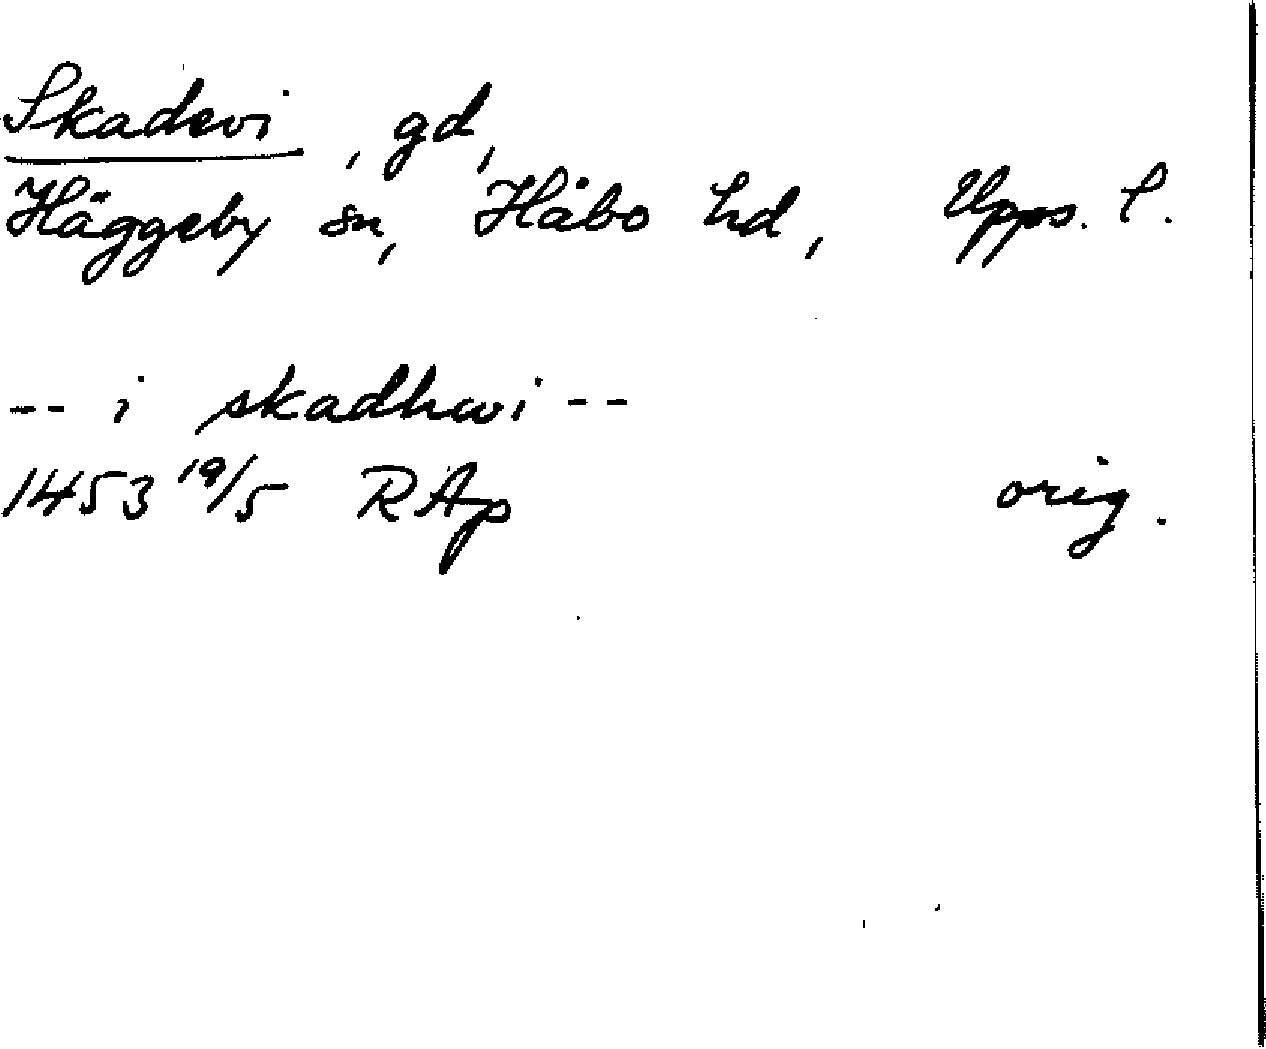 Skadevi, gd,
Häggeby sn, Håbo hd, Upps. l.
-- i skadhwi --
1453 19/5 RAp orig.